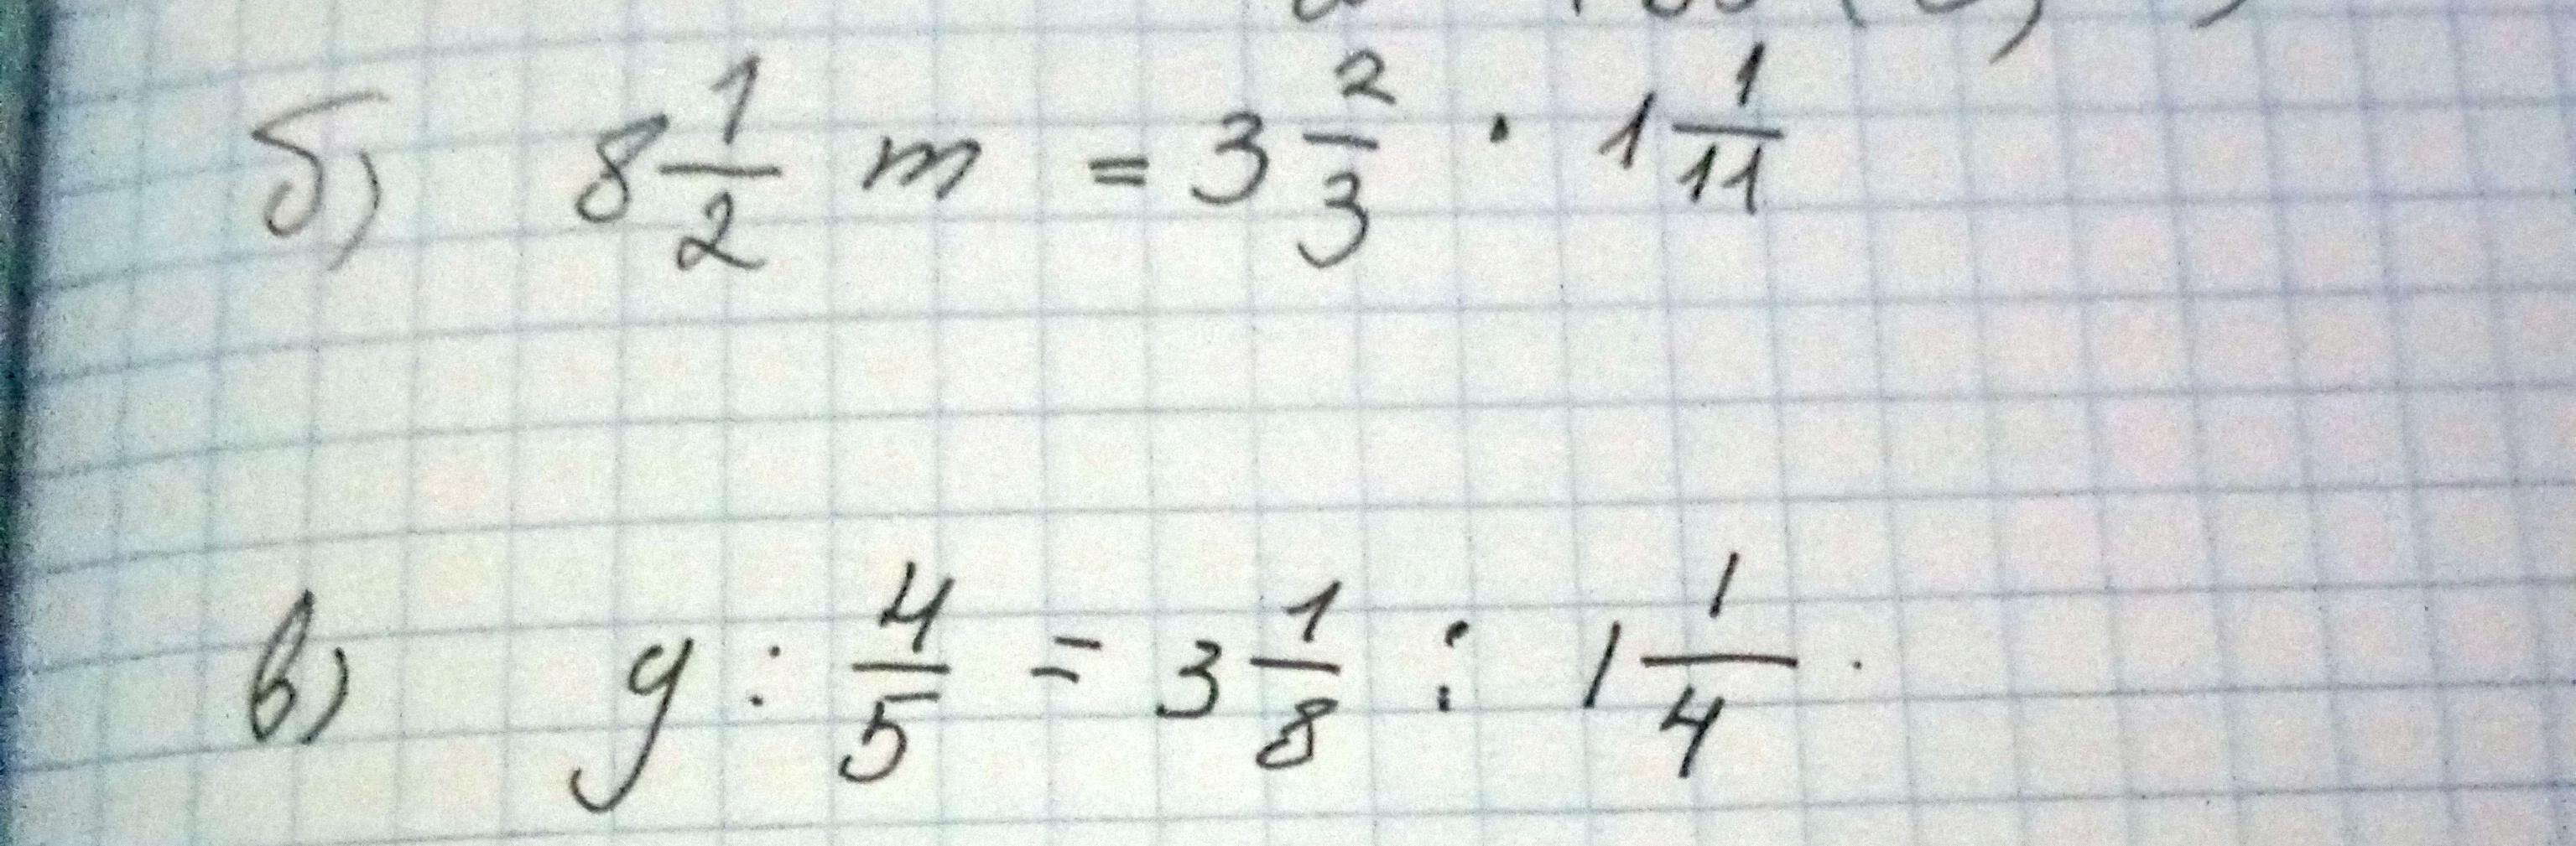 б) 8 1/2 m = 3 2/3 · 1 1/11
в) y : 4/5 = 3 1/8 : 1 1/4.